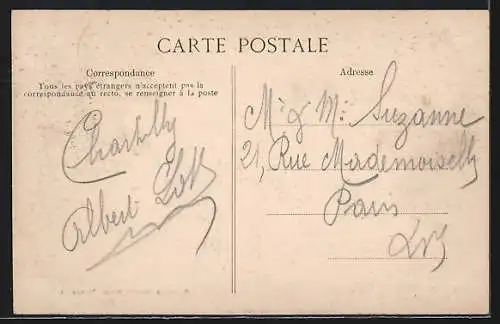 CARTE POSTALE
Correspondance
Tous les pays étrangers n'acceptent pas la
correspondance au recto, se renseigner à la poste
Chantilly
Albert
Adresse
Mr & Me Suzanne
21, Rue Mademoiselle
Paris